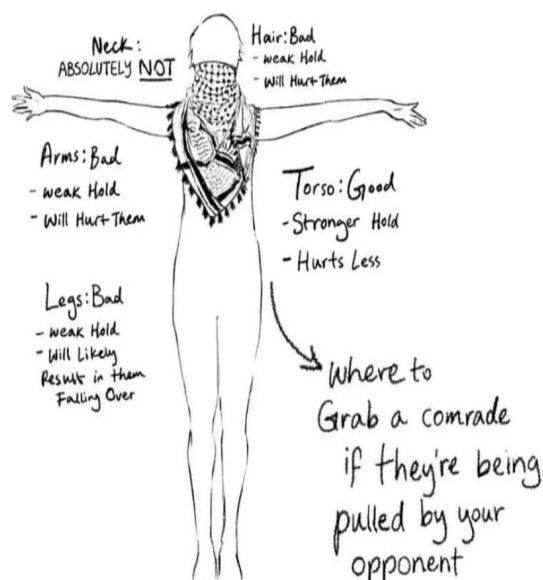 Neck:
ABSOLUTELY NOT
Hair: Bad
- weak Hold
- Will Hurt Them
Arms: Bad
- weak Hold
- Will Hurt Them
Torso: Good
- Stronger Hold
- Hurts Less
Legs: Bad
- weak Hold
- Will Likely
Result in them
Falling Over
Where to
Grab a comrade
if they're being
pulled by your
opponent